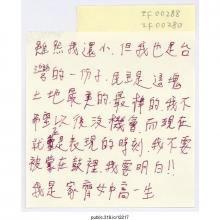 IF00288
IF00280
雖然我還小,但我也是台
灣的一份子,民主是這塊
土地最美的、最棒的,我不
希望以後沒機會,而現在
就是表現的時刻,我不要
被蒙在鼓裡,我要明白!!
我是家齊女中高一生
public.318.io/12217